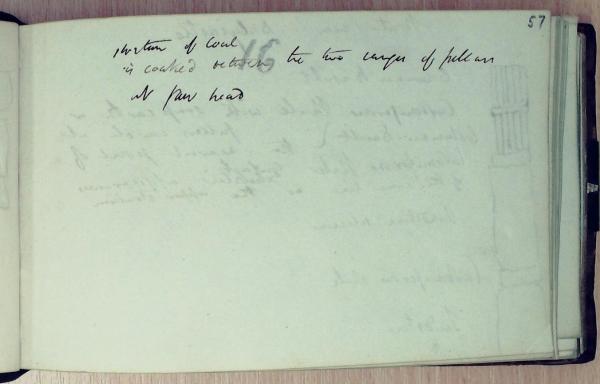 57
portion of Coal
is coaked between the two ranges of pillars
at fair head